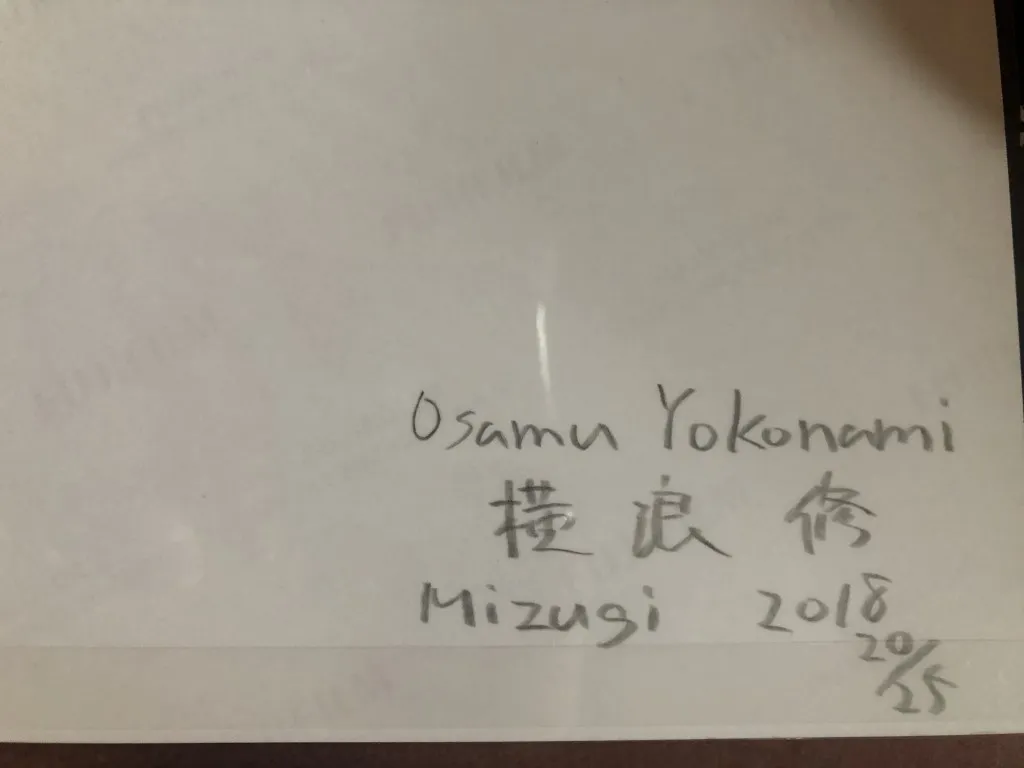 Osamu Yokonami
横浪 修
Mizugi 2018
20/25